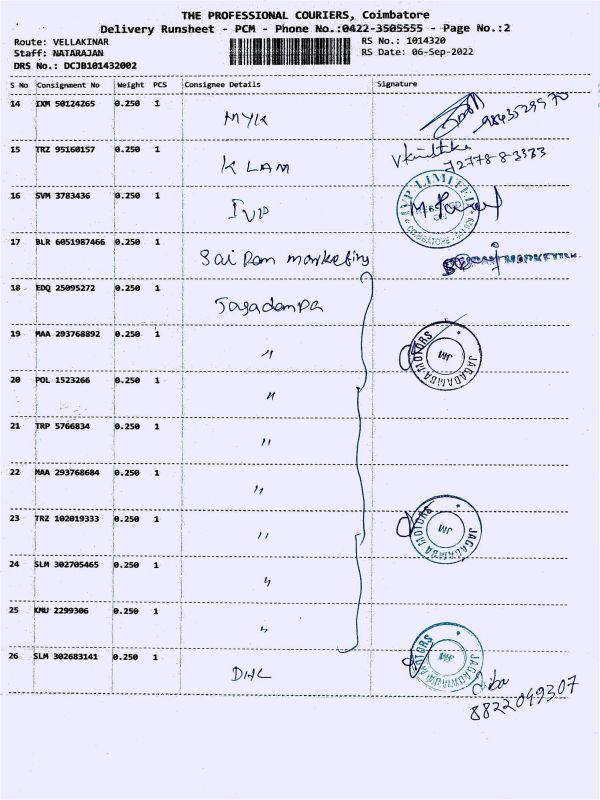 THE PROFESSIONAL COURIERS, Coimbatore
Delivery Runsheet - PCM - Phone No.:0422-3505555 - Page No.:2
Route: VELLAKINAR RS No.: 1014320
Staff: NATARAJAN RS Date: 06-Sep-2022
DRS No.: DCJB101432002
S No Consignment No Weight PCS Consignee Details Signature
14 IXM 50124265 0.250 1 MYK
15 TRZ 95160157 0.250 1 K LAM
16 SVM 3783436 0.250 1 IVP IVP LIMITED COIMBATORE
17 BLR 6051987466 0.250 1 Sai Ram marketing MARKETING
18 EDQ 25095272 0.250 1 Jagadampa
19 MAA 293768892 0.250 1 " JAGADAMBA MOTORS JM
20 POL 1523266 0.250 1 "
21 TRP 5766834 0.250 1 "
22 MAA 293768684 0.250 1 "
23 TRZ 102019333 0.250 1 " JAGADAMBA MOTORS JM
24 SLM 302705465 0.250 1 "
25 KMU 2299306 0.250 1 "
26 SLM 302683141 0.250 1 DHL JAGADAMBA MOTORS
8822049307